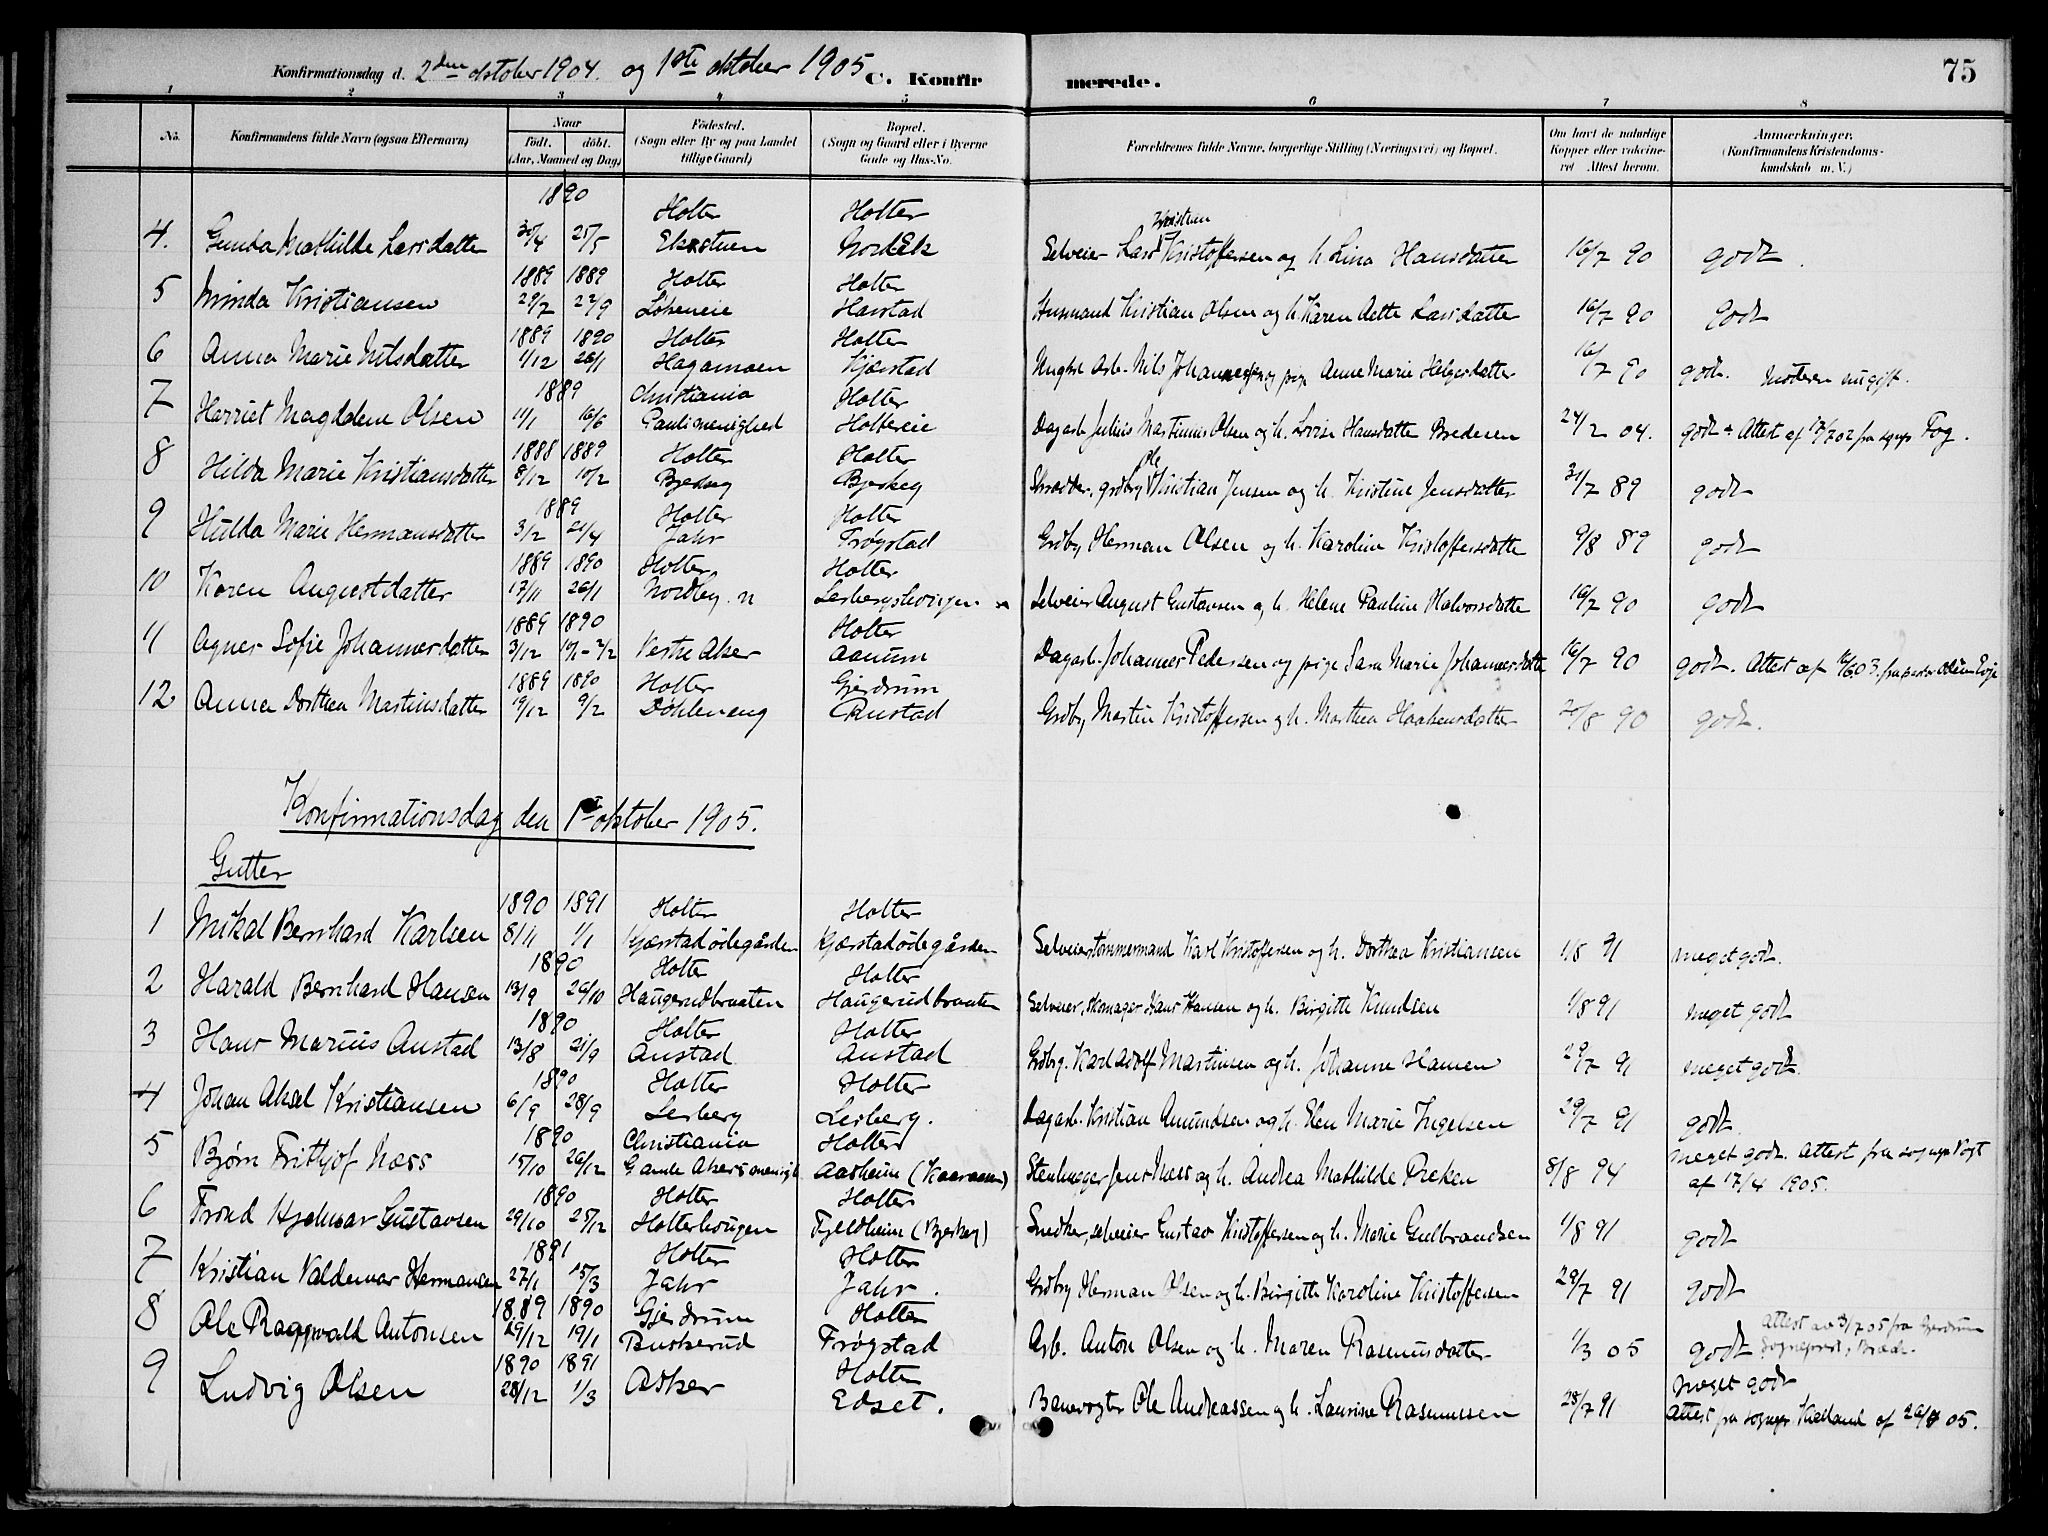 Konfirmationsdag d. 2den oktober 1904. og 1ste oktober 1905 C. Konfirmerede. 75
1 2 3 4 5 6 7 8
No. Konfirmandens fulde Navn (ogsaa Efternavn) Naar födt. döbt. (Aar, Maaned og Dag) Födested. (Sogn eller By og paa Landet tillige Gaard) Bopæl. (Sogn og Gaard eller i Byerne Gade og Hus-No. Forældrenes fulde Navne, borgerlige Stilling (Næringsvei) og Bopæl. Om havt de naturlige Kopper eller vakcineret Attest herom. Anmærkninger. (Konfirmandens Kristendomskundskab m. V.)
1890 Holter Holter
4. Gunda Mathilde Larsdatter 30/4 25/5 Ekstuen Nordek Selveier Lars Kristian Kristoffersen og h. Lina Hansdatter 16/7 90 godt.
1889 1889 Holter Holter
5 Minda Kristiansen 29/7 22/9 Løkeneie Harstad Husmand Kristian Olsen og h. Karen Dette Larsdatter 16/7 90 godt
1889 1890 Holter Holter
6 Anna Marie Nilsdatter 1/12 26/1 Hagamoen Kjærstad Ungkl. Arb. Nils Johannessen og pige Anne Marie Helgesdatter 16/7 90 godt. Moderen ugift.
1889 Christiania Holter
7 Harriet Magdalene Olsen 11/1 16/6 Pauli menighed Holtereie Dagarb. Julius Martinius Olsen og h. Lovise Hansdatter Brederen 24/2 04. godt. Attest af 17/7 02 fra sogpr. Fog.
1888 1889 Holter Holter
8 Hilda Marie Kristiansdatter 8/12 10/2 Bjerkeg Bjerkeg Skrædder, grdbrg Ole Kristian Jensen og h. Kristine Jensdatter 31/7 89 godt
1889 Holter Holter
9 Hulda Marie Hermansdatter 3/2 21/4 Jahr Frøgstad Grdbrg Herman Olsen og h. Karoline Kristoffersdatter 9/8 89 godt
1889 1890 Holter Holter
10 Karen Augustdatter 17/11 26/1 Nordby. n Lerbergshougen Selveier August Gustavsen og h. Helene Pauline Halvorsdatter 16/7 90 godt
1889 1890 Holter
11 Agnes Sofie Johannesdatter 3/12 10/1-2/2 Vestre Aker Aanum Dagarb. Johannes Pedersen og pige Sara Marie Johannesdatter 16/7 90 godt. Attest af
1889 1890 Holter Gjerdrum
12 Anna Dorthea Martinsdatter 19/12 9/2 Döhleneng Rustad Grdbrg Martin Kristoffersen og h. Marthea Haakensdatter 20/8 90 godt.
Konfirmationsdag den 1ste oktober 1905.
Gutter
1890 1891 Holter Holter
1 Mikal Bernhard Karlsen 8/11 1/1 Kjærstadødegården Kjærstadødegården Selveier tømmermand Karl Kristoffersen og h. Dorthea Kristiansen 1/8 91 meget godt.
1890 Holter Holter
2 Harald Bernhard Hansen 13/9 26/10 Haugerudbraaten Haugerudbraaten Selveier, skomager Hans Hansen og h. Birgitte Knudsen 1/8 91 meget godt
1890 Holter Holter
3 Hans Marius Austad 13/8 21/9 Austad Austad Grdbrg. Karl Adolf Martinsen og h. Johanne Hansen 29/7 91 meget godt.
1890 Holter Holter
4 Johan Aksel Kristiansen 6/9 28/9 Lerberg Lerberg. Dagarb. Kristian Amundsen og h. Elen Marie Ingelsen 29/7 91 godt.
1890 Christiania Holter
5 Bjørn Frithjof Næss 15/10 26/12 Gamle Akers menigh. Aasheim Stenhugger Jens Næss og h. Andrea Mathilde Preken 8/8 94 meget godt. Attest fra sognepr. Vogt
af 17/4 1905.
1890 Holter Holter
6 Trond Hjalmar Gustavsen 29/10 25/12 Holterhougen Fjeldheim (Bjerkeg) Snedker, selveier Gustav Kristoffersen og h. Marie Gulbrandsen 1/8 91 godt
1891 Holter Holter
7 Kristian Valdemar Hermansen 27/1 15/3 Jahr Jahr. Grdbrg Herman Olsen og h. Birgitte Karoline Kristoffersen 29/7 91 godt
1889 1890 Gjerdrum Holter
8 Ole Ragnvald Antonsen 29/12 19/1 Buskerud Frøgstad Arb. Anton Olsen og h. Maren Rasmusdatter 1/3 05 godt Attest av 3/7 05 fra Gjerdrum
1890 1891 Holter
9 Ludvig Olsen 28/12 1/3 Asker Edset. Banevogter Ole Andreassen og h. Laurine Rasmussen 28/7 91 meget godt
Attest fra sognepr. Kielland af 05.